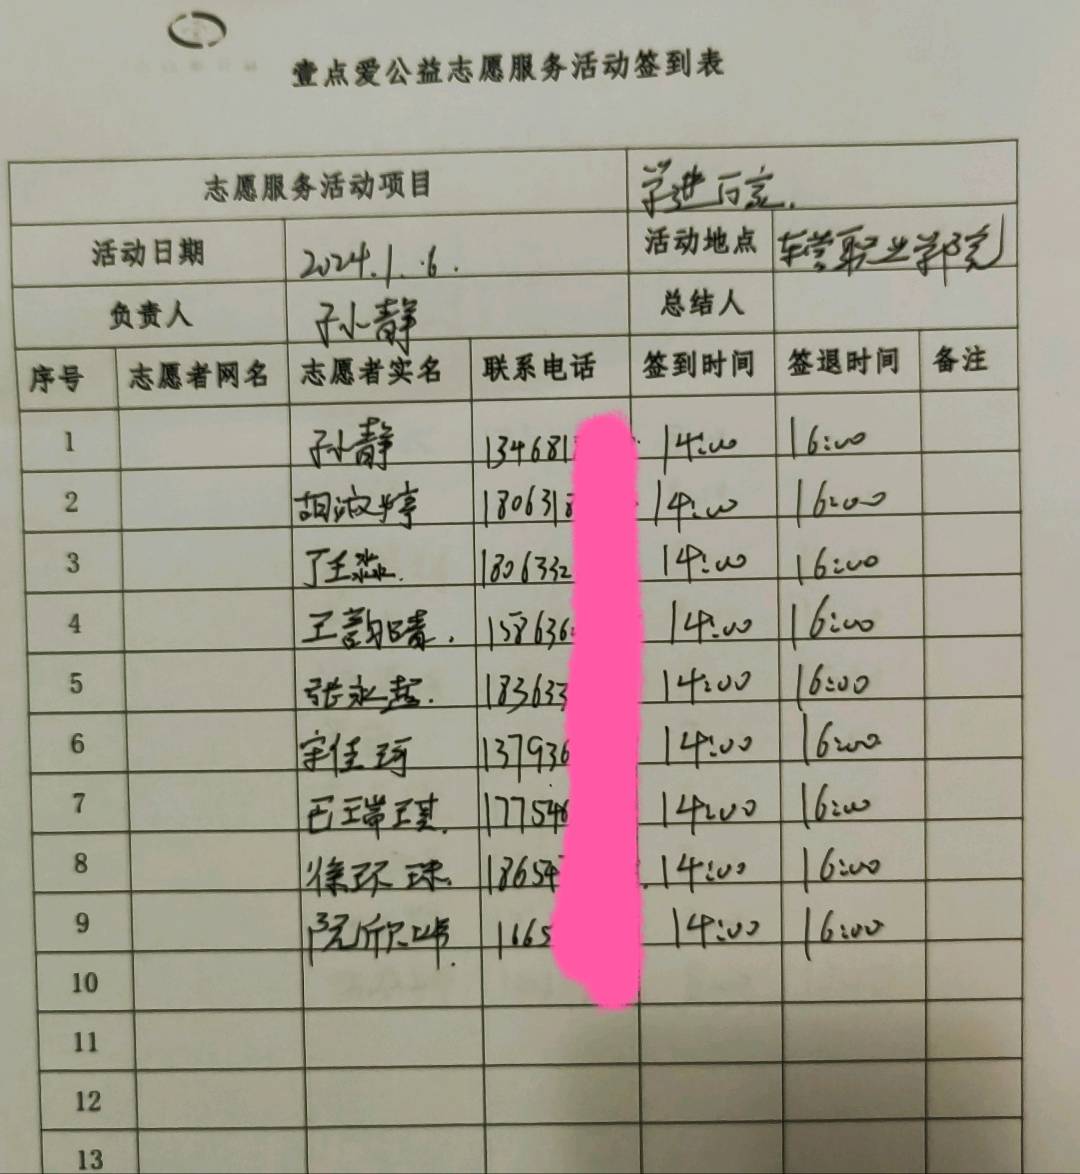 壹点爱公益志愿服务活动签到表
志愿服务活动项目 学进百家.
活动日期 2024.1.6. 活动地点 东营职业学院
负责人 孙小静 总结人
序号 志愿者网名 志愿者实名 联系电话 签到时间 签退时间 备注
1 孙小静 134681 14:00 16:00
2 胡淑婷 180631 14:00 16:00
3 丁王淼. 1806332 14:00 16:00
4 王韵晴. 158636 14:00 16:00
5 张永超. 183633 14:00 16:00
6 宋佳琦 137936 14:00 16:00
7 王瑞琪. 177546 14:00 16:00
8 徐环珠. 18654 14:00 16:00
9 1665 14:00 16:00
10
11
12
13